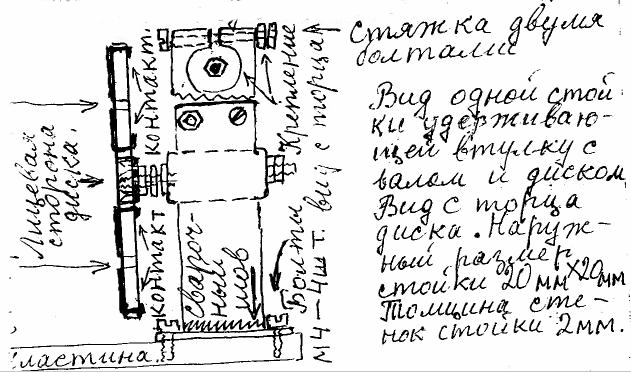 стяжка двумя
болтами
Вид одной стой-
ки удерживаю-
щей втулку с
валом и диском
Вид с торца
диска. Наруж-
ный размер
стойки 20мм×20мм
Толщина сте-
нок стойки 2мм.
Лицевая
сторона
диска.
контакт.
контакт
свароч-
ный
шов
Крепление
вид с торца
Болты
М4-4шт.
ластина.